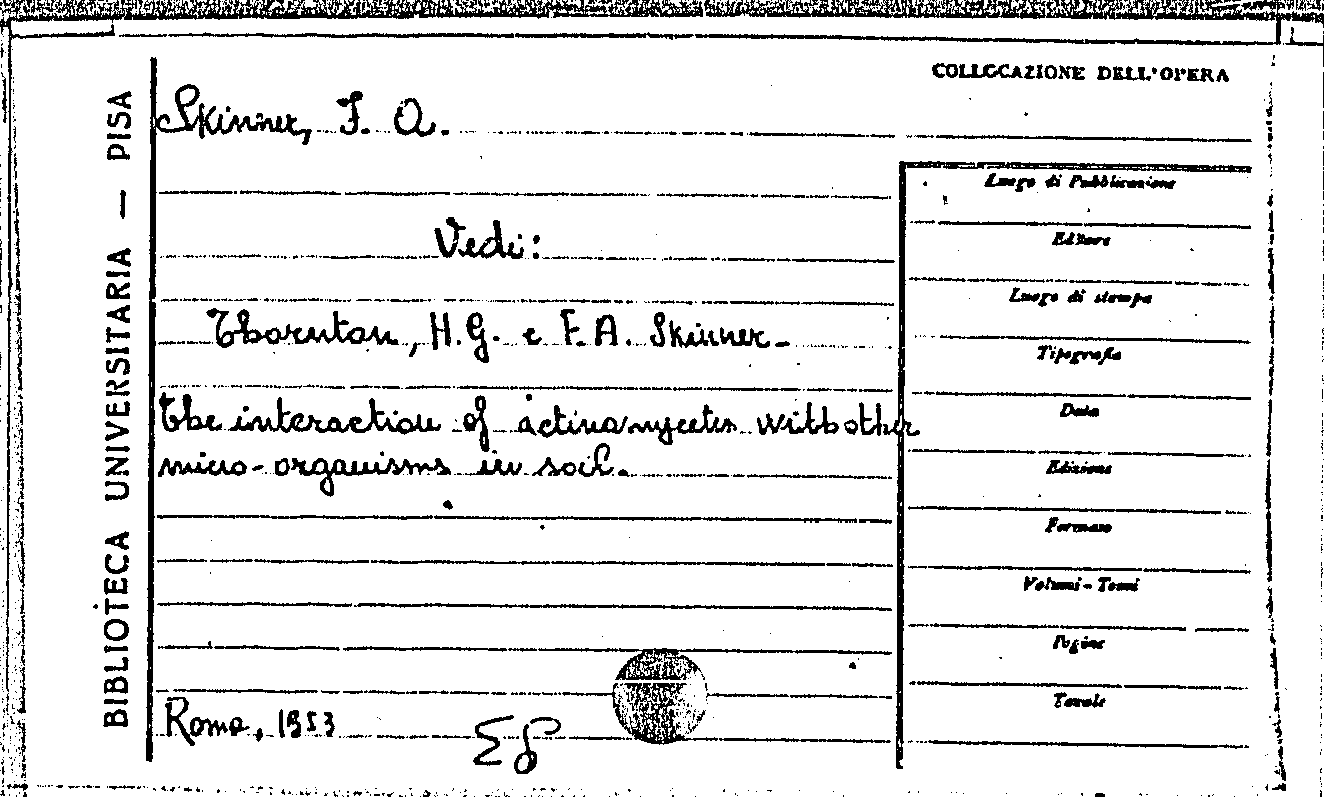 COLLOCAZIONE DELL'OPERA
BIBLIOTECA UNIVERSITARIA — PISA
Skinner, F. A.
Vedi:
Thornton, H.G. e F.A. Skinner.
The interaction of actinomycetes with other
micro-organisms in soil.
Roma, 1953
Luogo di Pubblicazione
Editore
Luogo di stampa
Tipografia
Data
Edizione
Formato
Volumi - Tomi
Pagine
Tavole